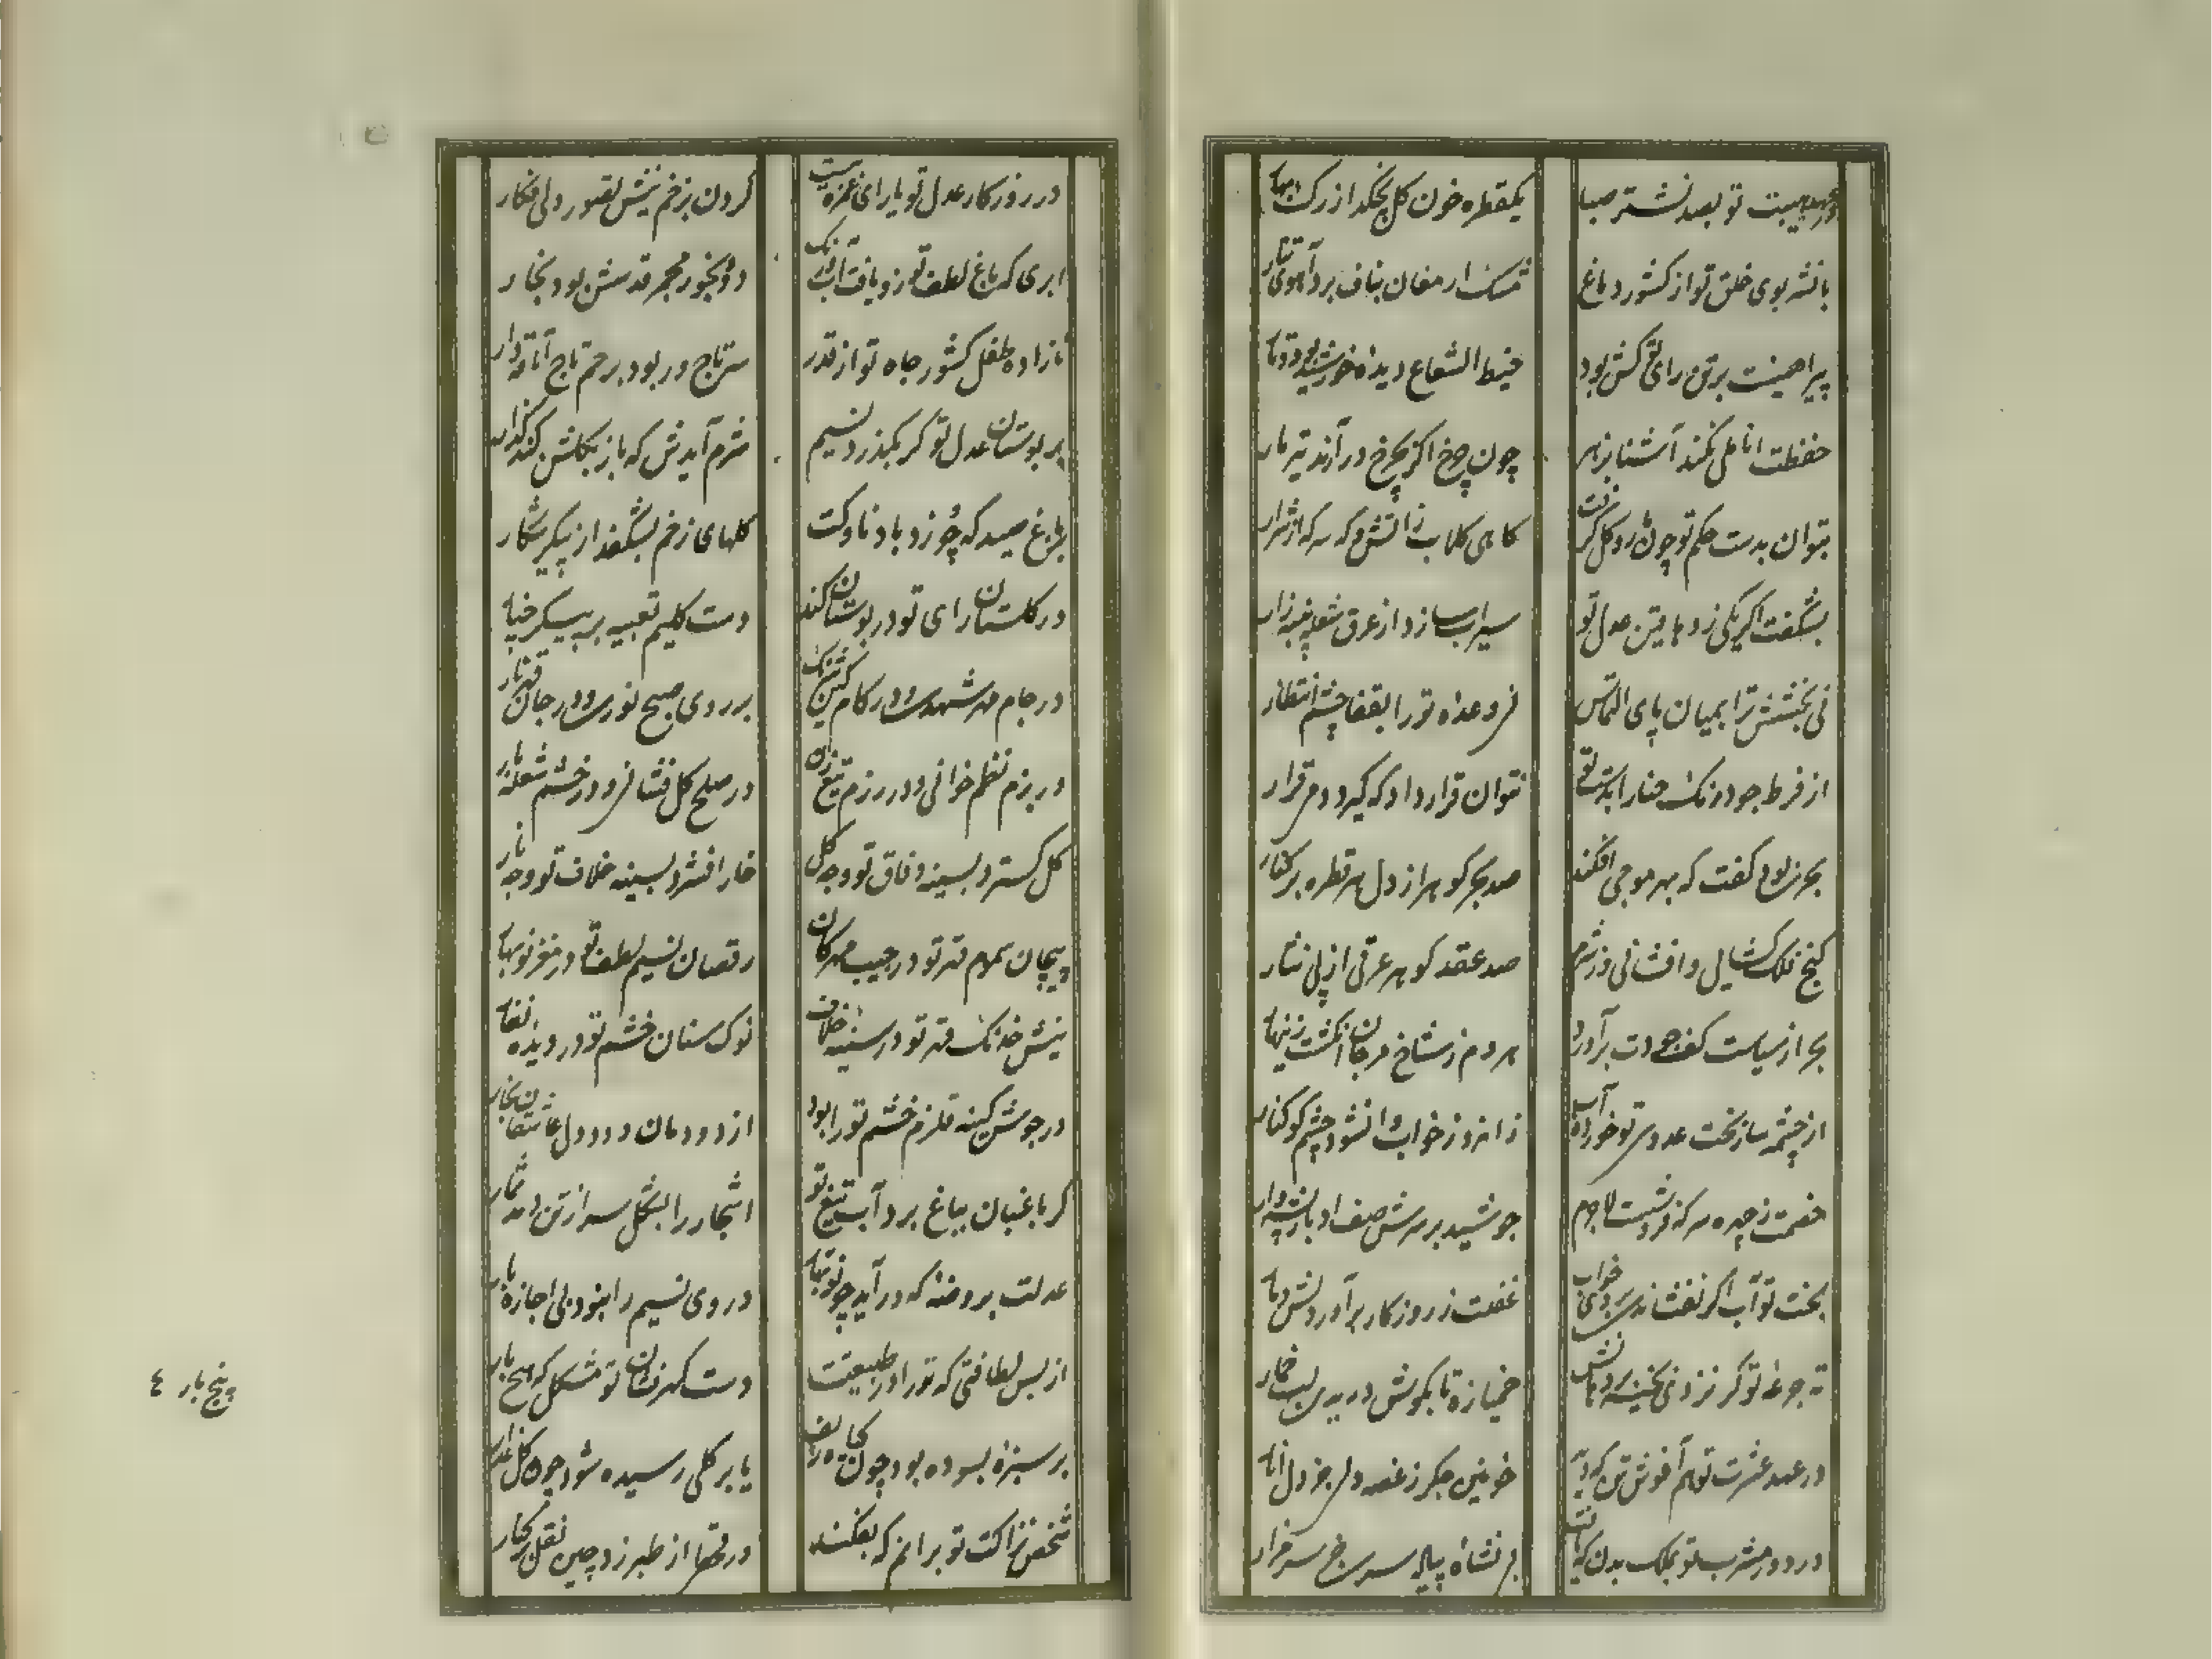 در عهد هیبت تو بصد نشتر صبا
یکقطره خون گل نچکد از رک بهار
با نشر بوی خلق تو از کشور دماغ
مشک ارمغان بناف برد آهوی تتار
پیراهنیست برتن رای تو کش بود
خیط الشعاع دیده خورشید پود و تار
حفظت اناملی نکند آشنا بزهر
چون چرخ اگر بچرخ در آرند تیره مار
بتوان بدست حکم تو چون رو گل گرفت
گاهی گلاب ز آتش و که سرکه از شرار
بشگفت اگر یکی ز دهاقین عدل تو
سیراب سازد از عرق شعله پنبه زار
نی بخشش ترا بمیان پای التماس
نی وعده تو را بقفا چشم انتظار
از فرط جود رنک حنا را بدست تو
نتوان قرار داد که گیرد دمی قرار
بحر نوال و کفت که بهر موجی افکند
صد بحر گوهر از دل هر قطره بر کنار
گنج فلک گشایی و افشانی و ز شرم
صد عقد گوهر عرقی از پی نثار
بحر از سیاست کف جودت بر آورد
هر دم ز شاخ مرجان انگشت زینهار
از چشمه سار بخت عدوی تو خورده آب
زانرو ز خواب وا نشود چشم کوکنار
خصمت ز چهره سرکه فروشست لاجرم
جوشید بر سرش صف ادبار پشه وار
بخت تو آب اگر نفشاند بروی خواب
غفلت ز روزگار برآورد دمار
ته جرعه تو گر نزدی بخیه بر لبش
خمیازه تا بگوش دریدی لب خمار
در عهد عشرت تو هم آغوش تن که دید
خونین جگر ز غصه دلی جز دل انار
در دور مشرب تو بملک بدن که یافت
بی نشاه پیاله سر سرخ سرفراز
در روزگار عدل تو یارای غمزه نیست
کردن بزخم نیش تصور دلی فکار
ابری که باغ لطف تو زو یافت آب و رنک
دود بخور مجمر قدسش بود بخار
نازاده طفل کشور جاه تو از قدر
سر تاج ور بود برحم تاج
بر بوستان عدل تو گر بگذرد نسیم
شرم آیدش که باز بگلشن کند گذار
باغ صید که چو زد باد ناوکت
گلهای زخم بشگفد از پیکر شکار
در گلستان رای تو در بوستان کند
دست کلیم تعبیه بر پیکر خیار
در جام مهر شهدی و در کام کین شرنک
بر روی صبح نوری و در جان قهر نار
در بزم نظم خوانی و در رزم تیغ زن
در صلح گل فشانی و در خشم شعله بار
گل گسترد بسینه وفاق تو وجه گل
خار افشرد بسینه خلاف تو وجه نار
پیچان سموم قهر تو در جیب مهرگان
رقصان نسیم لطف تو در مغز نوبهار
نیش خدنک قهر تو در سینه خلاف
نوک سنان خشم تو در دیده نفار
در جوش کینه قلزم خشم تو را بود
از دودمان دود دل عاشقان بخار
گر باغبان بباغ برد آب تیغ تو
اشجار را بشکل سر از تن دمد ثمار
عدلت بروضه که در آید چو نوبهار
در وی نسیم را نبود بی اجازه بار
از بس لطافتی که تو را در طبیعتست
دست گهر نشان تو مشکل که هیچ بار
بر سبزه بسوده بود چون زلف
یا بر گلی رسیده شود چون گل عذار
شخص نزاکت تو بر انم که بفکند
در از طبرزد چین نقل
پنج بار ٤